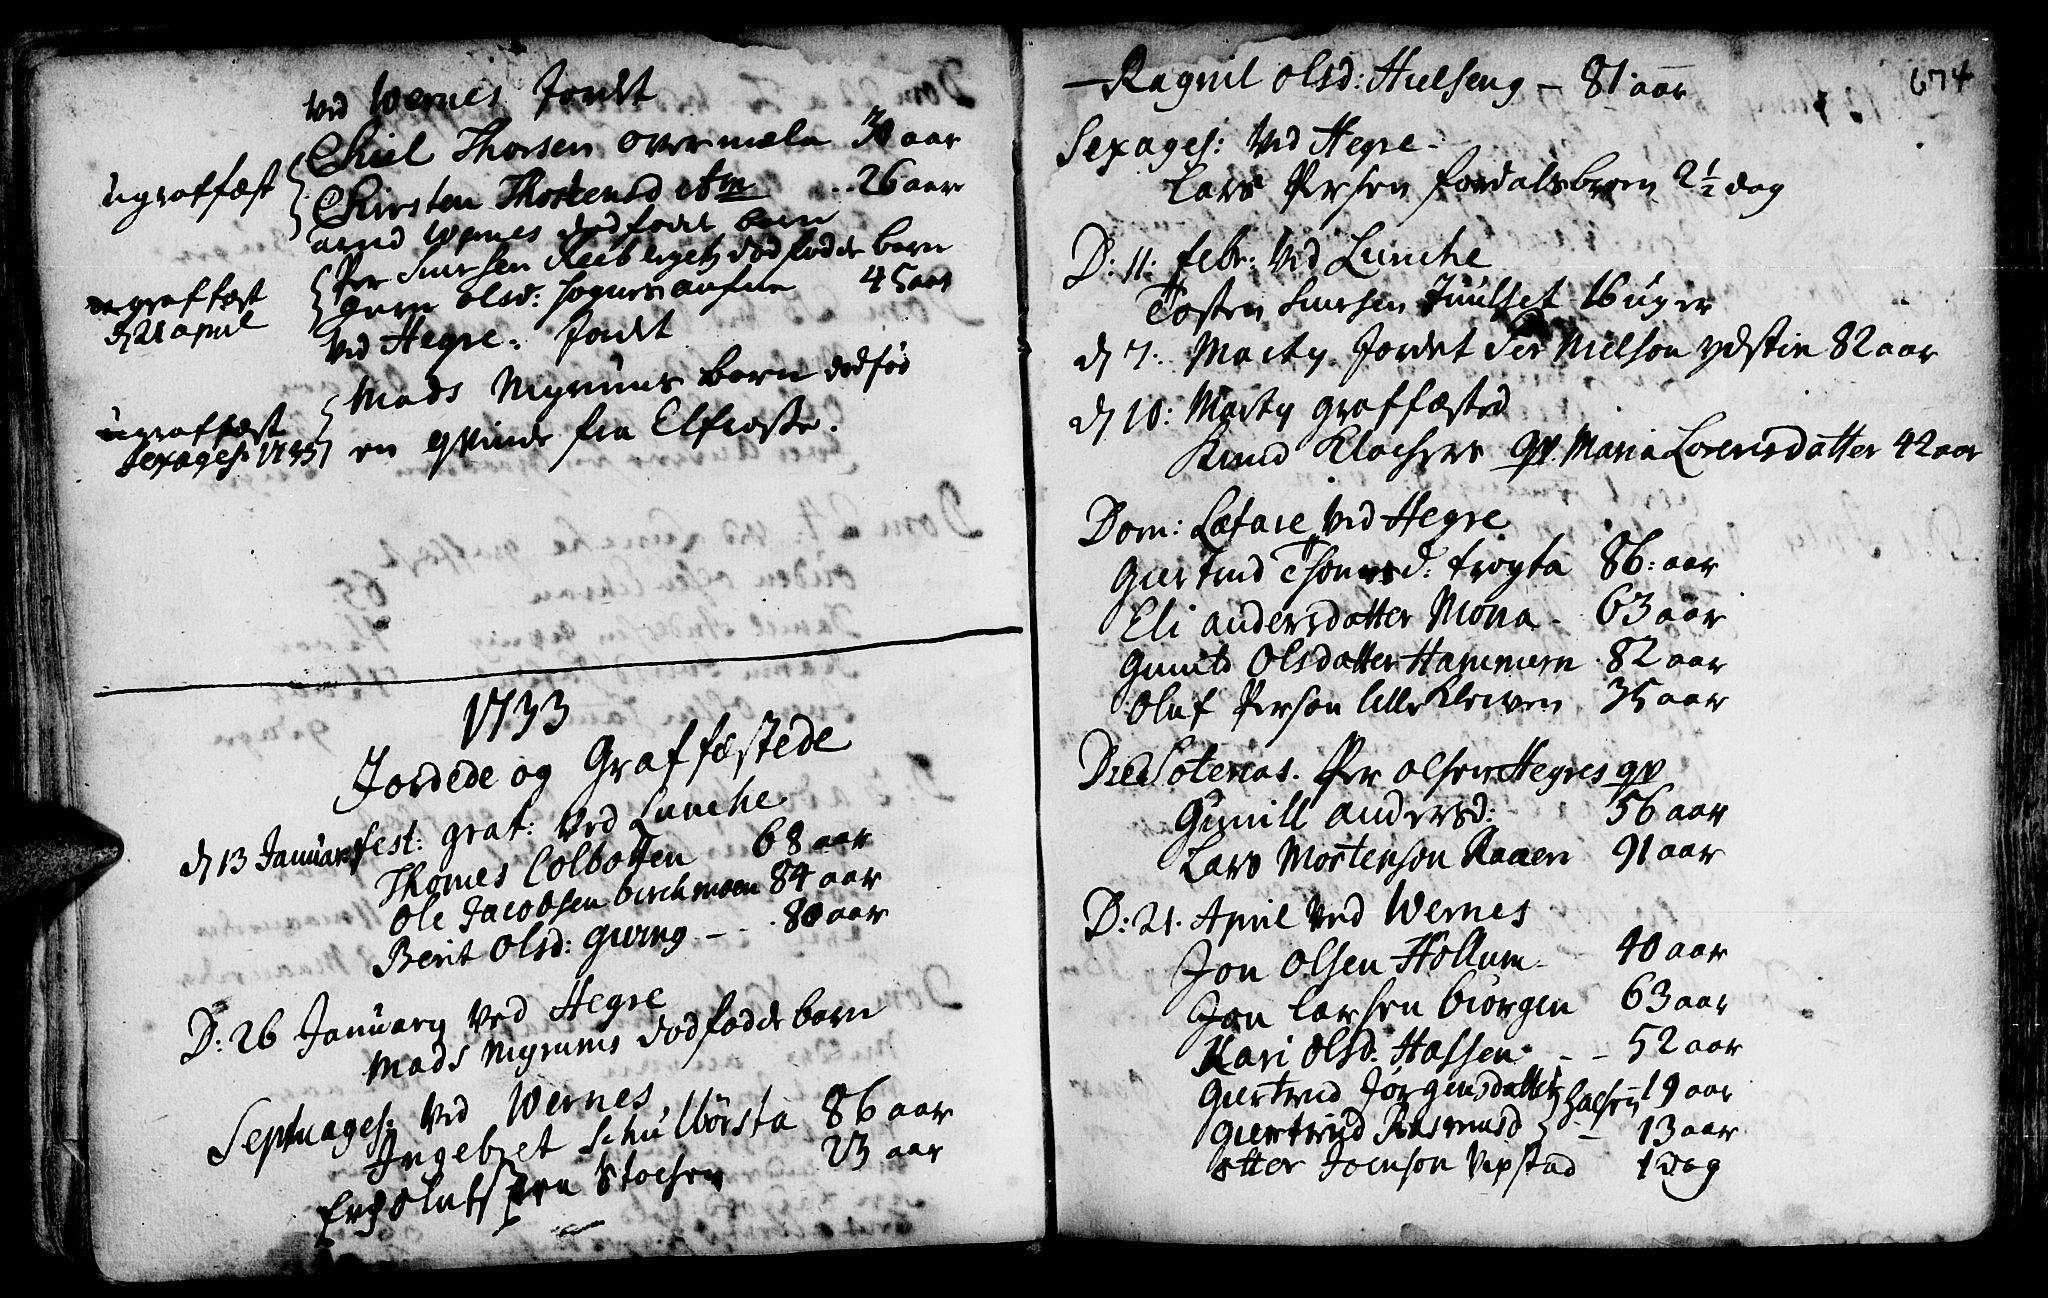 Ved Wernes Jordt
Chiel Thorsen overmæla 30 aar
ugraffæst
Chirsten Thostensd Am .. 26 aar
arnd Wernes dødfødde barn
Per Siursen Reebergetz dødfødde barn
ugraffæst
olsd: 45 aar
d 21 april
Ved Hegre. Jordt
Mads Mgruns barn dødfød
ugraffæst
Sexages: 1733
en qvinde fra Elfrosse.
1733
Jordede og Graffæstede
d 13 Januar fest: graf: Ved Lunche
Thomes Colbotten 68 aar
Ole Jacobsen birchmoen 84 aar
Berit Olsd: gieving - - . 80 aar
D: 26 January Ved Hegre
Mads Mgruns dødfødde barn
Septuages: Ved Wernes
Ingebret Schulbörsta 86 aar
Stochen 23 aar
674
- Ragnil olsd: Hielseng - 81. aar
Sexages: Ved Hegre -
Lars Persen fordalsbroen 2½ dag
D: 11: febr: Ved Lunche
Tosten Siursen Juulset 16 uger
d 7: Marty Jordet Per Nielson ydstie 82 aar
d 10: Marty graffæsted
Knud Klochers qv. Maria Lorensdatter 42 aar
Dom: Lætare Ved Hegre
Giertrud Thomesd: trøyta 86: aar
Eli andersdatter Mona - 63 aar
Gunild Olsdatter Hammern 82 aar
Oluf Person lille Kleiven 35 aar
Die Soterias. Per olsen Hegres qv
Gunill andersd: 56 aar
Lars Mortenson Raaen 91 aar
D: 21. April Ved Wernes
Jon Olsen Hollum - 40 aar
Jon larsen biørgen 63 aar
Kari Olsd. Halsen - - 52 aar
Giertrud Jørgensdatter } halsen 19 aar
Giertrud Rasmusd } - 13 aar
otter Joenson Vepstad 1 dag